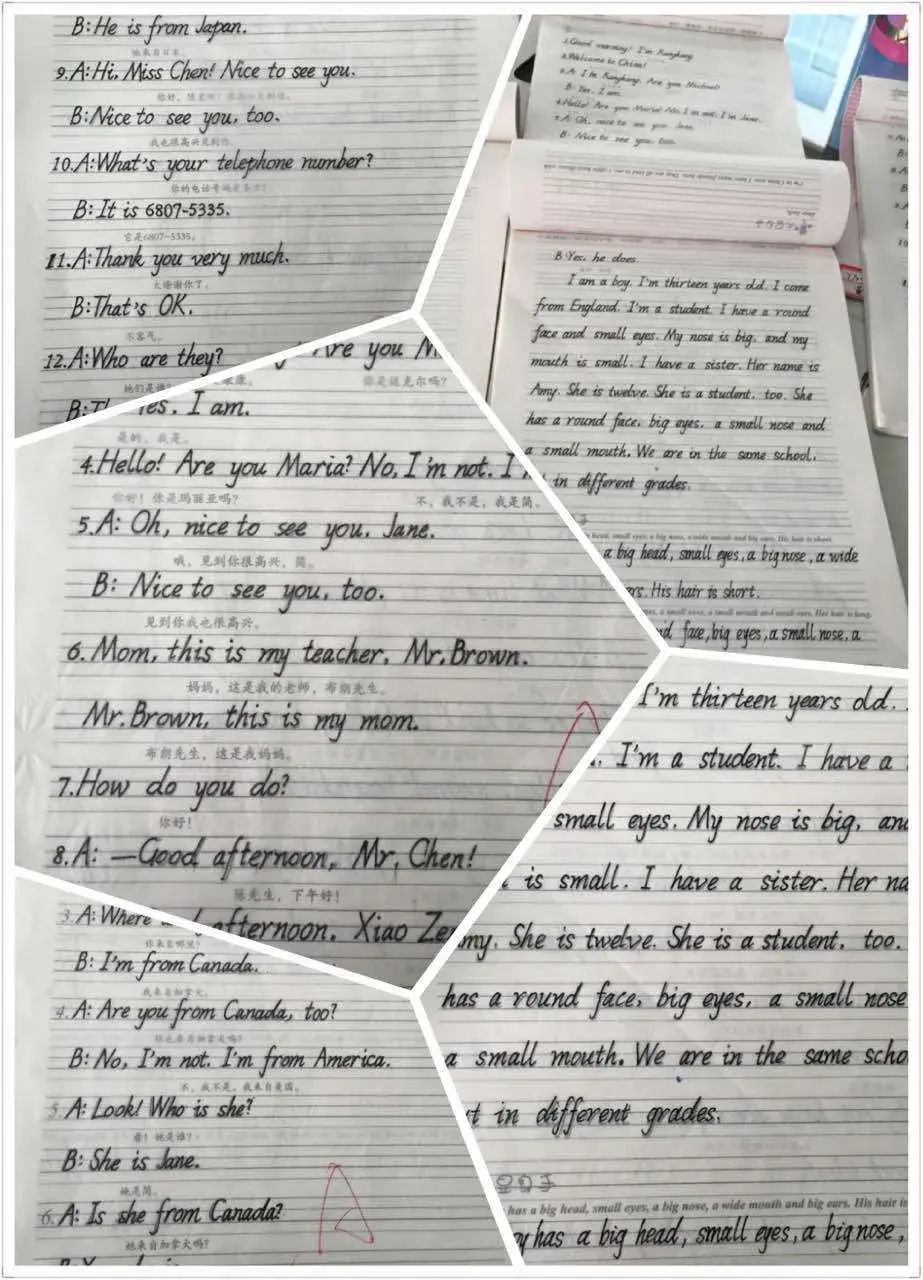 B: He is from Japan.
她来自日本。
9.A: Hi, Miss Chen! Nice to see you.
B: Nice to see you, too.
10.A: What's your telephone number?
B: It is 6807-5335.
它是6807-5335。
11.A: Thank you very much.
太谢谢你了。
B: That's OK.
不客气。
12.A: Who are they?
1.Good morning! I'm Kangkang.
2.Welcome to China!
3.A: I'm Kangkang. Are you Michael?
B: Yes, I am.
4.Hello! Are you Maria? No, I'm not. I'm Jane.
5.A: Oh, nice to see you, Jane.
B: Nice to see you, too.
B: Yes, he does.
I am a boy. I'm thirteen years old. I come
from England. I'm a student. I have a round
face and small eyes. My nose is big, and my
mouth is small. I have a sister. Her name is
Amy. She is twelve. She is a student, too. She
has a round face, big eyes, a small nose and
a small mouth. We are in the same school,
in different grades.
head, small eyes, a big nose, a wide mouth and big ears. His hair is short.
a big head, small eyes, a big nose, a wide
His hair is short.
eyes, a small nose, a small mouth and small ears. Her hair is long.
face, big eyes, a small nose, a
Are you M
你是迈克尔吗?
Yes, I am.
是的,我是。
4.Hello! Are you Maria? No, I'm not. I
你好!你是玛丽亚吗? 不,我不是,我是简。
5.A: Oh, nice to see you, Jane.
哦,见到你很高兴,简。
B: Nice to see you, too.
见到你我也很高兴。
6. Mom, this is my teacher, Mr. Brown.
妈妈,这是我的老师,布朗先生。
Mr. Brown, this is my mom.
布朗先生,这是我妈妈。
7.How do you do?
你好!
8.A: —Good afternoon, Mr. Chen!
陈先生,下午好!
afternoon, Xiao
3.A: Where
你来自哪里?
B: I'm from Canada.
我来自加拿大。
4.A: Are you from Canada, too?
你也来自加拿大吗?
B: No, I'm not. I'm from America.
不,我不是。我来自美国。
5.A: Look! Who is she?
看!她是谁?
B: She is Jane.
她是简。
6.A: Is she from Canada?
她来自加拿大吗?
A
I'm thirteen years old.
I'm a student. I have a
small eyes. My nose is big, and
is small. I have a sister. Her na
my. She is twelve. She is a student, too.
has a round face, big eyes, a small nose
a small mouth. We are in the same scho
in different grades.
has a big head, small eyes, a big nose, a wide mouth and big ears. His hair is
has a big head, small eyes, a big nose,